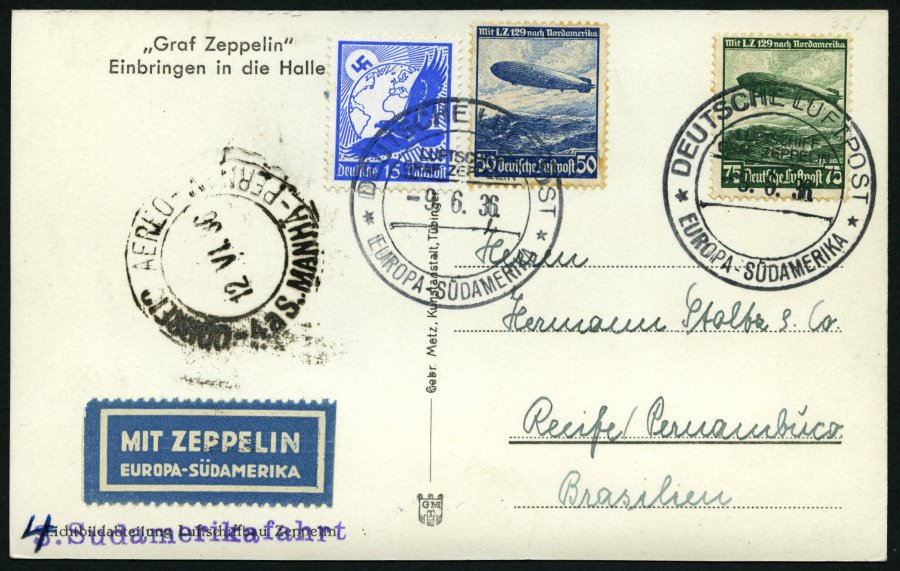 „Graf Zeppelin"
Einbringen in die Halle
Deutsche 15 Luftpost
Mit LZ 129 nach Nordamerika
50 Deutsche Luftpost 50
Mit LZ 129 nach Nordamerika
75 Deutsche Luftpost 75
DEUTSCHE LUFTPOST
LUFTSCHIFF
GRAF ZEPPELIN
6. 36
EUROPA-SÜDAMERIKA
DEUTSCHE LUFTPOST
LUFTSCHIFF
ZEPPELIN
6. 36
EUROPA-SÜDAMERIKA
AEREO
12 VI. 36
S. MANHÃ-PERN
Herrn
Hermann Stoltz & Co.
Recife/Pernambuco
Brasilien
Gebr. Metz, Kunstanstalt, Tübingen
GM
T
MIT ZEPPELIN
EUROPA-SÜDAMERIKA
Lichtbildabteilung Luftschiffbau Zeppelin
4
. Südamerikafahrt